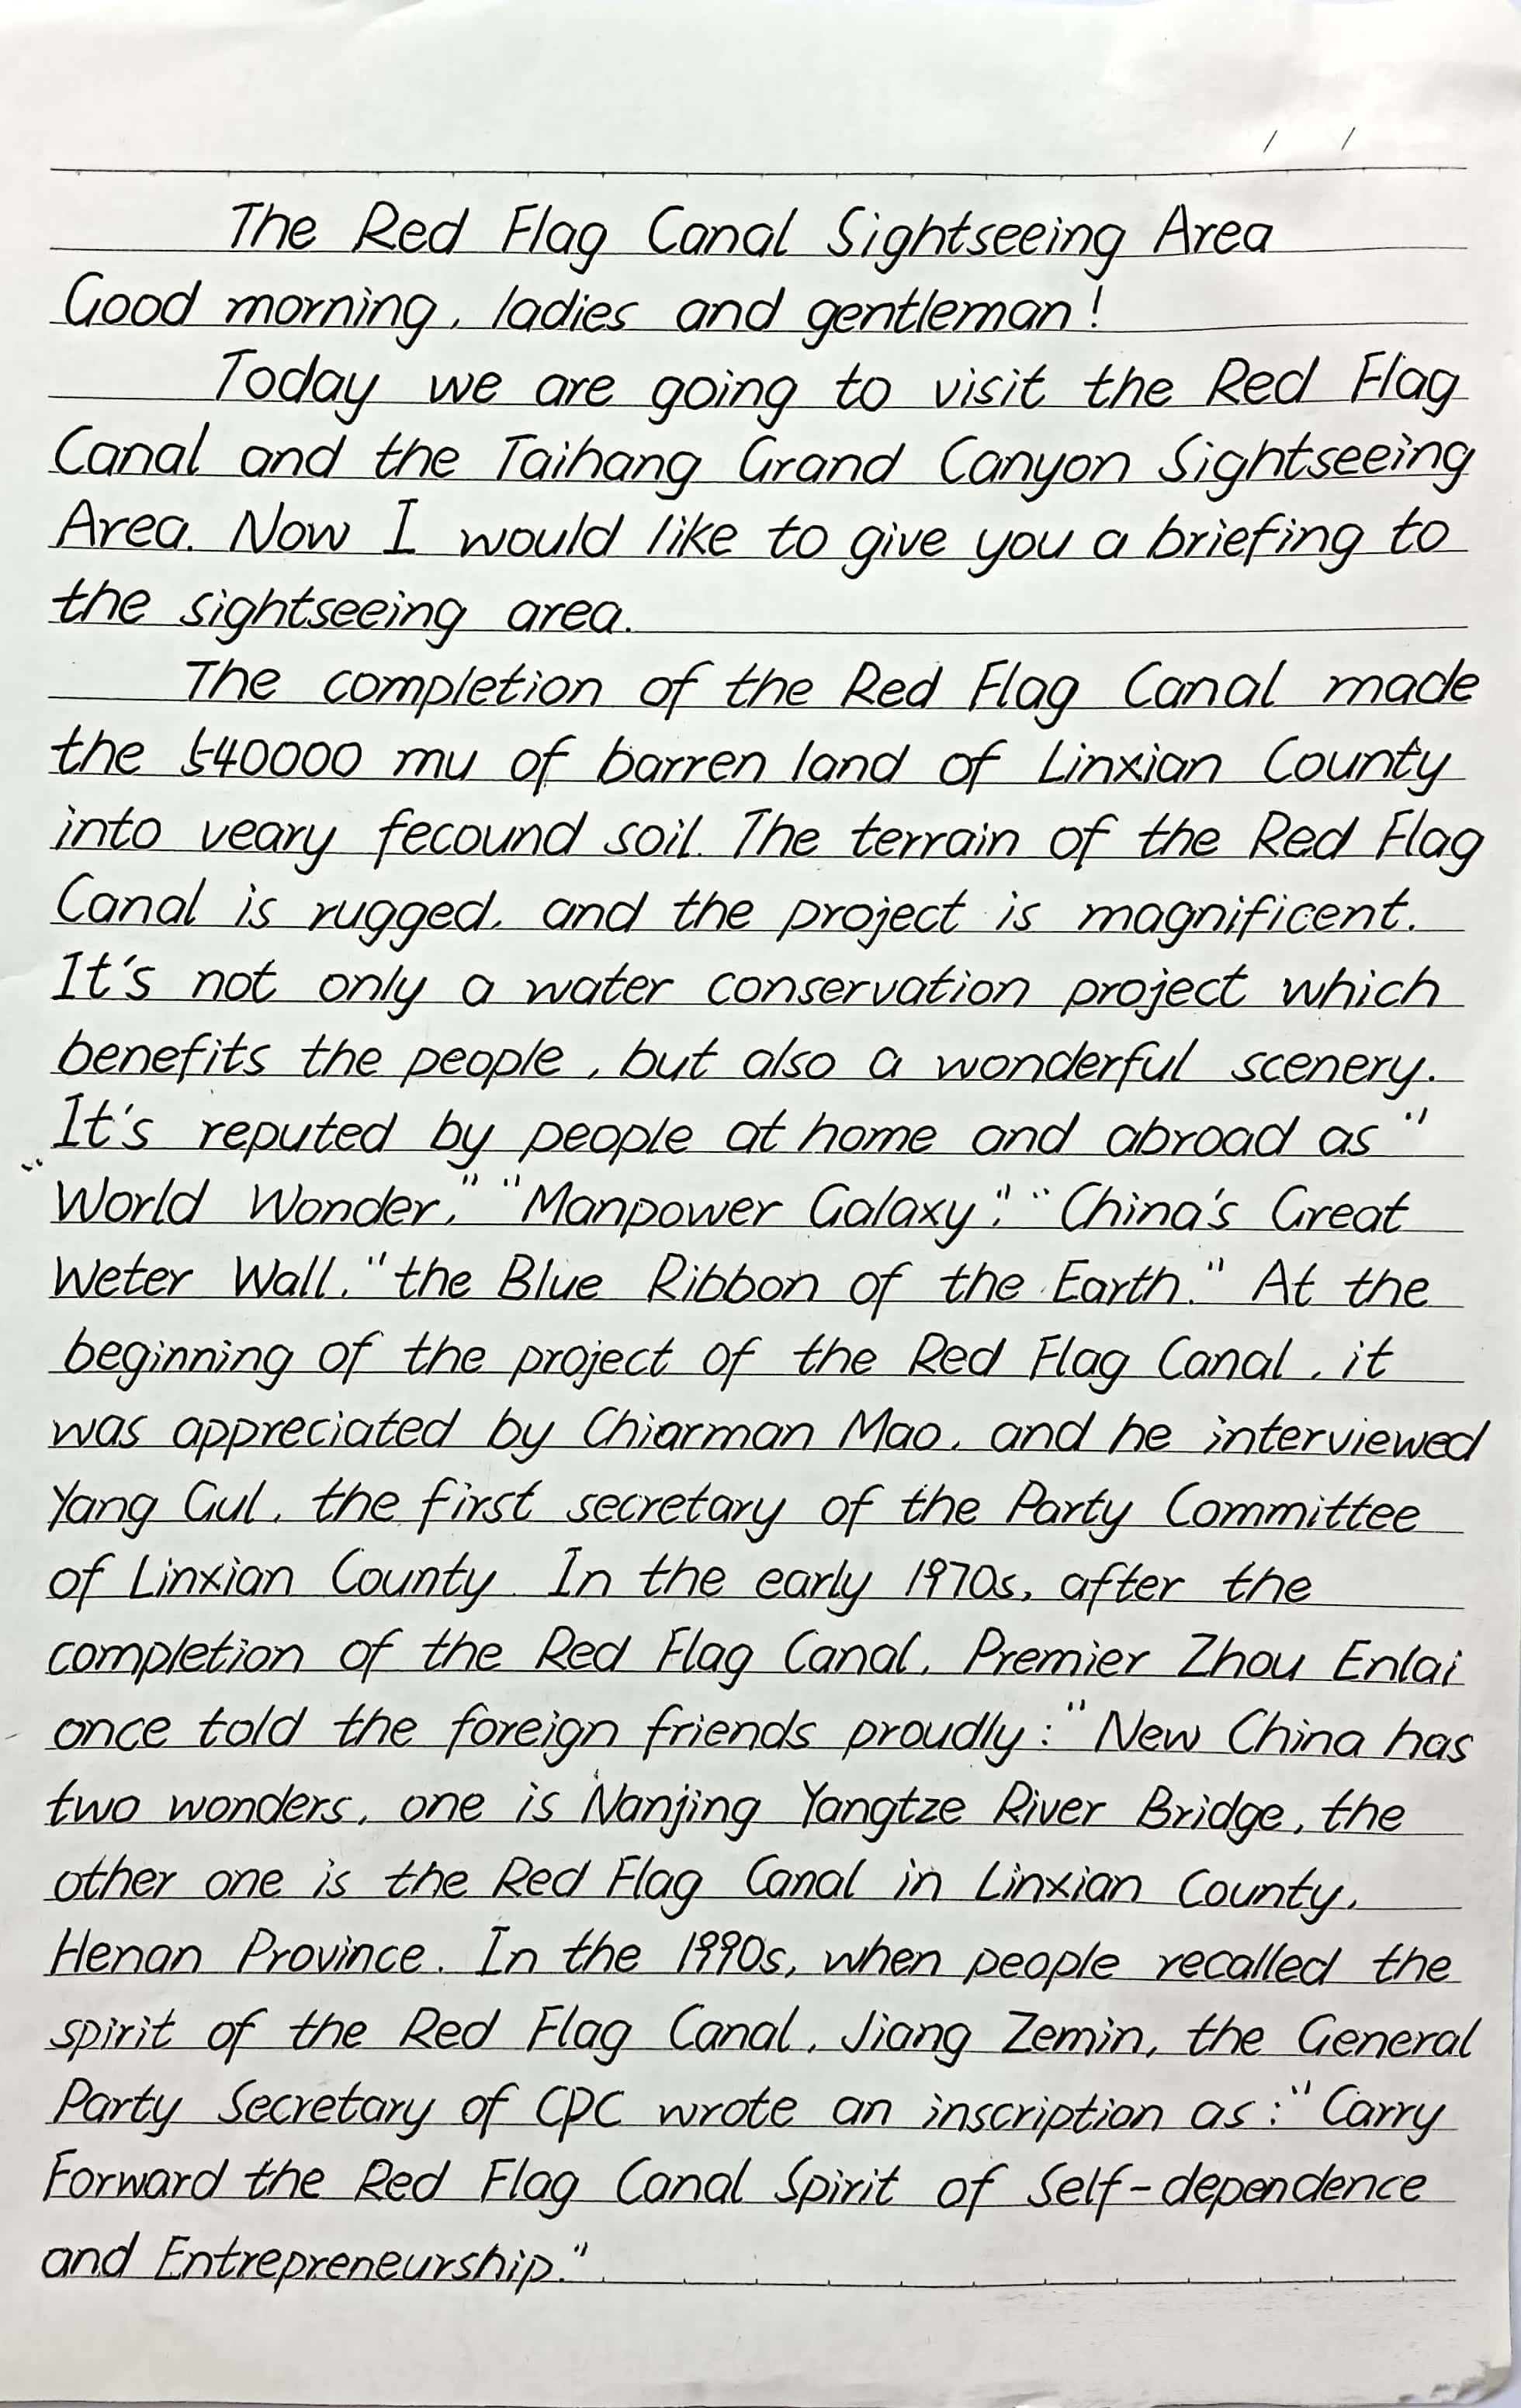 The Red Flag Canal Sightseeing Area
Good morning, ladies and gentleman!
Today we are going to visit the Red Flag
Canal and the Taihang Grand Canyon Sightseeing
Area. Now I would like to give you a briefing to
the sightseeing area.
The completion of the Red Flag Canal made
the 540000 mu of barren land of Linxian County
into veary fecound soil. The terrain of the Red Flag
Canal is rugged, and the project is magnificent.
It's not only a water conservation project which
benefits the people, but also a wonderful scenery.
It's reputed by people at home and abroad as "
"World Wonder," "Manpower Galaxy," "China's Great
Weter Wall, "the Blue Ribbon of the Earth." At the
beginning of the project of the Red Flag Canal, it
was appreciated by Chiarman Mao, and he interviewed
Yang Gul, the first secretary of the Party Committee
of Linxian County. In the early 1970s, after the
completion of the Red Flag Canal, Premier Zhou Enlai
once told the foreign friends proudly: "New China has
two wonders, one is Nanjing Yangtze River Bridge, the
other one is the Red Flag Canal in Linxian County,
Henan Province. In the 1990s, when people recalled the
spirit of the Red Flag Canal, Jiang Zemin, the General
Party Secretary of CPC wrote an inscription as: "Carry
Forward the Red Flag Canal Spirit of Self-dependence
and Entrepreneurship."